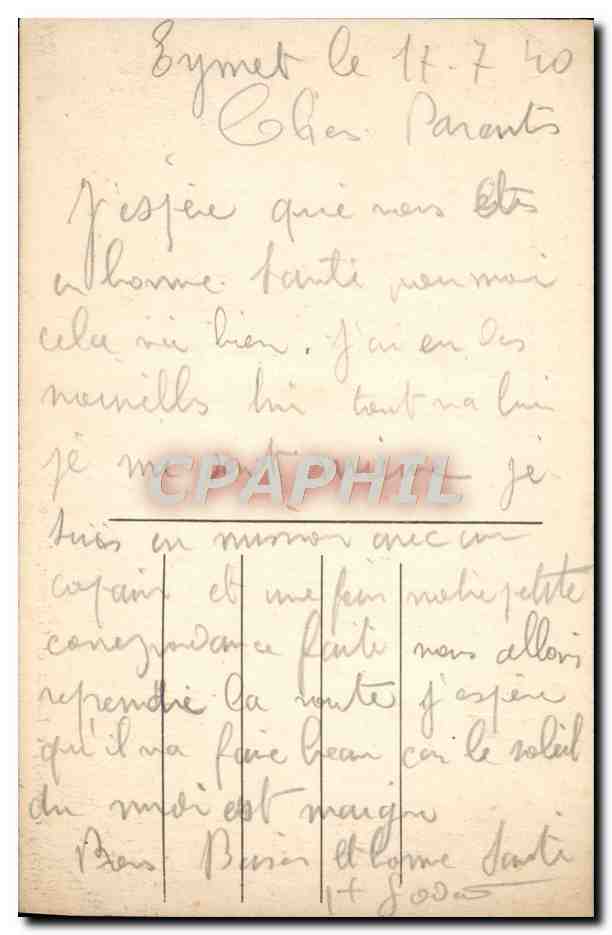 Eymet le 17.7 40
Chers Parents
J'espère que vous êtes
en bonne Santé pour moi
cela va bien. J'ai eu des
nouvelles tout va bien
je je
suis en mission avec un
copain et une fois notre petite
correspondance faite nous allons
reprendre la route j'espère
qu'il va faire beau car le soleil
du midi est maigre
Bons Baisers et bonne Santé
CPAPHIL